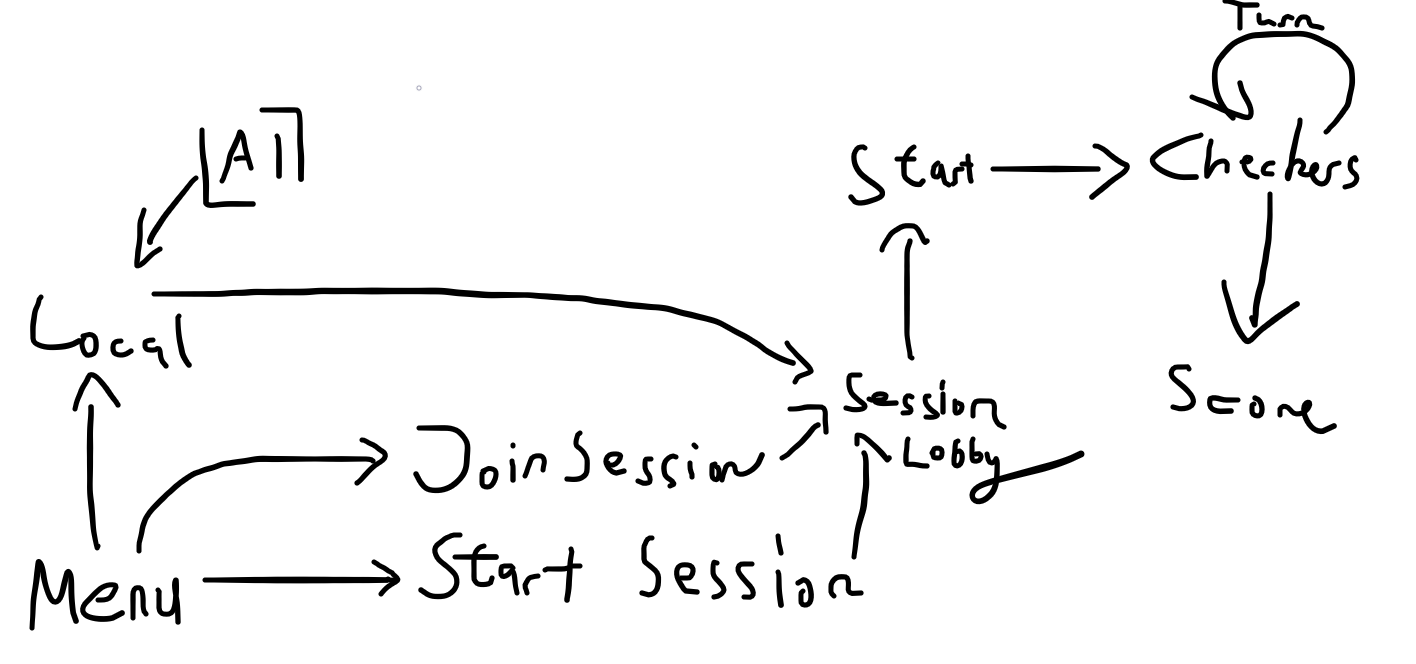 Turn
[AI]
Start
Checkers
Local
Session
Lobby
Score
Join Session
Start Session
Menu